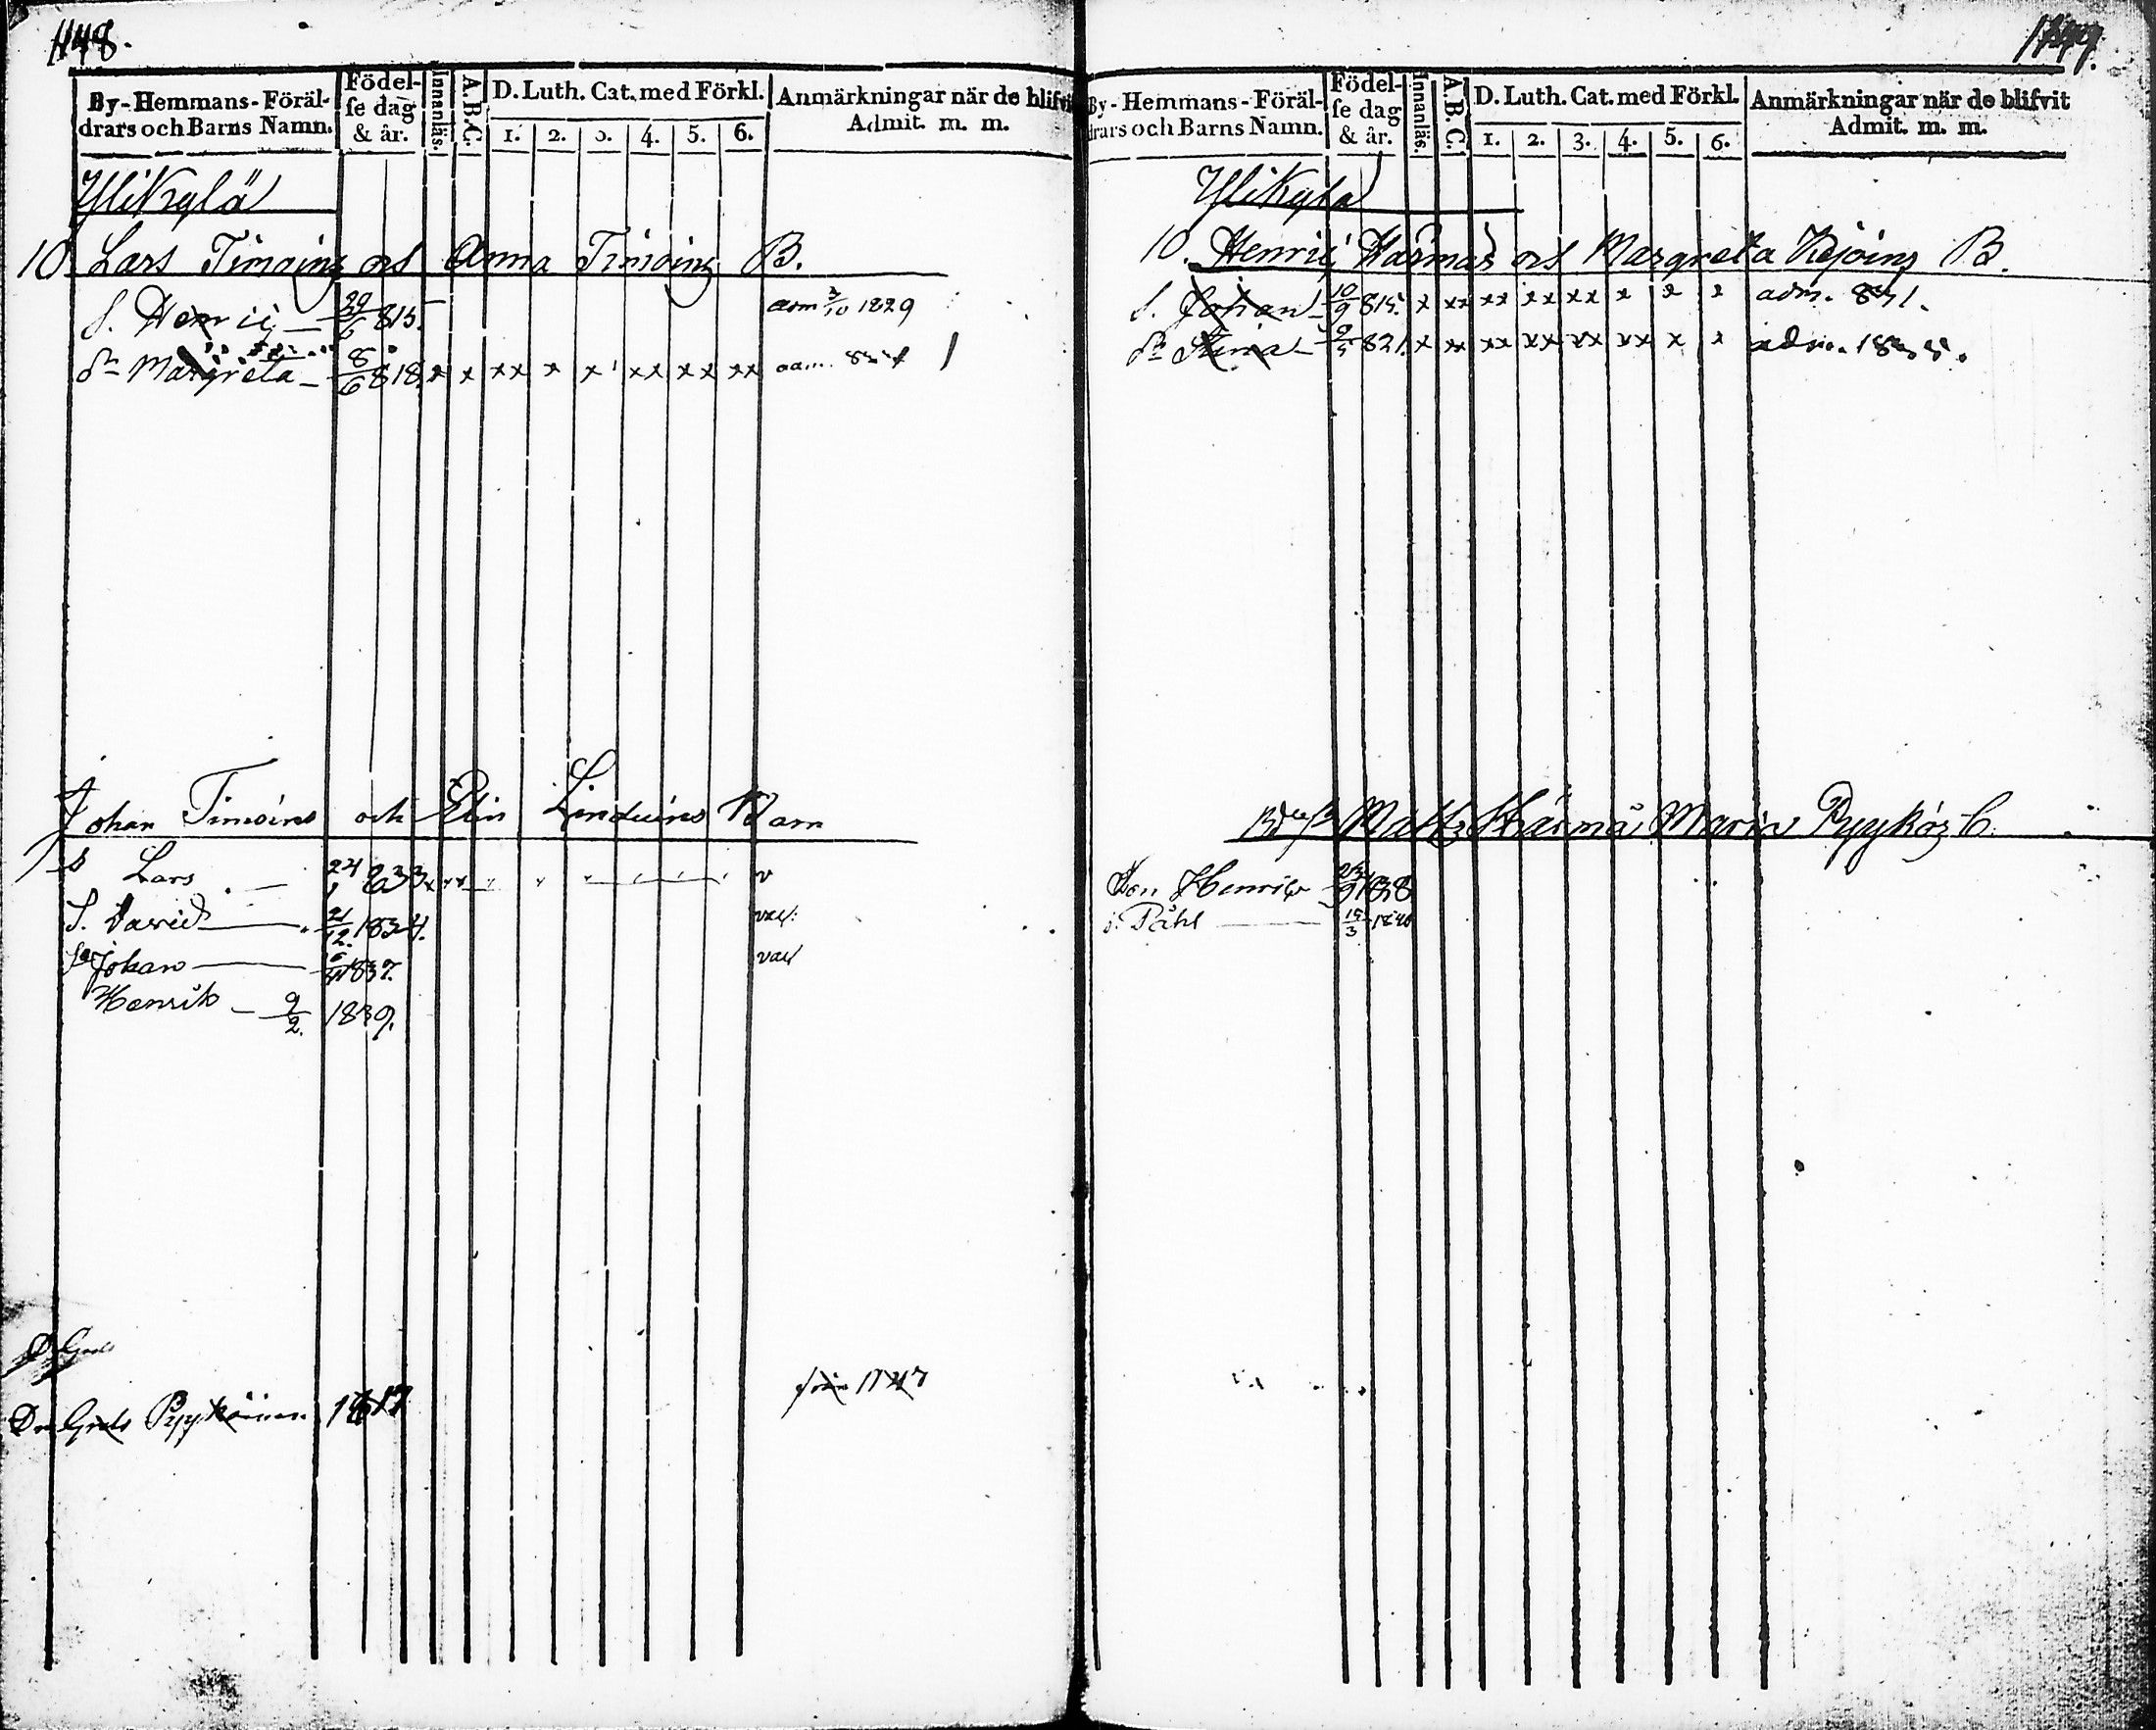 1148.
By-Hemmans-Föräl-
drars och Barns Namn.
Födel-
se dag
& år.
Innanläs.
A.B.C.
D. Luth. Cat. med Förkl.
1. 2. 3. 4. 5. 6.
Anmärkningar när de blifvit
Admit. m. m.
Ylikylä
10 Lars Timoinz och Anna Timoinz B.
S. Henric — 29/6 815. adm 3/10 1829
Dr Margreta — 8/6 818. x x xx x x xx xx xx
Johan Timoins och Elin Linduins Barn
S Lars — 24/1 833 x v
S. David — 21/12. 1834.
Johan — 1837.
Henrik — 9/2. 1839.
Pyyköinen 1817
By-Hemmans-Föräl-
drars och Barns Namn.
Födel-
se dag
& år.
Innanläs.
A.B.C.
D. Luth. Cat. med Förkl.
1. 2. 3. 4. 5. 6.
Anmärkningar när de blifvit
Admit. m. m.
Ylikylä
10. Henric Härmäs och Margreta Kejoinz B.
S. Johan — 10/9 815. x xx xx xx xx x x x adm. 831.
Dr Stina — 821. x xx xx xx xx xx x x adm.
Matts Härmä Maria Pyyköz
Son Henric 1838
S. Påhl — 15/3 1840